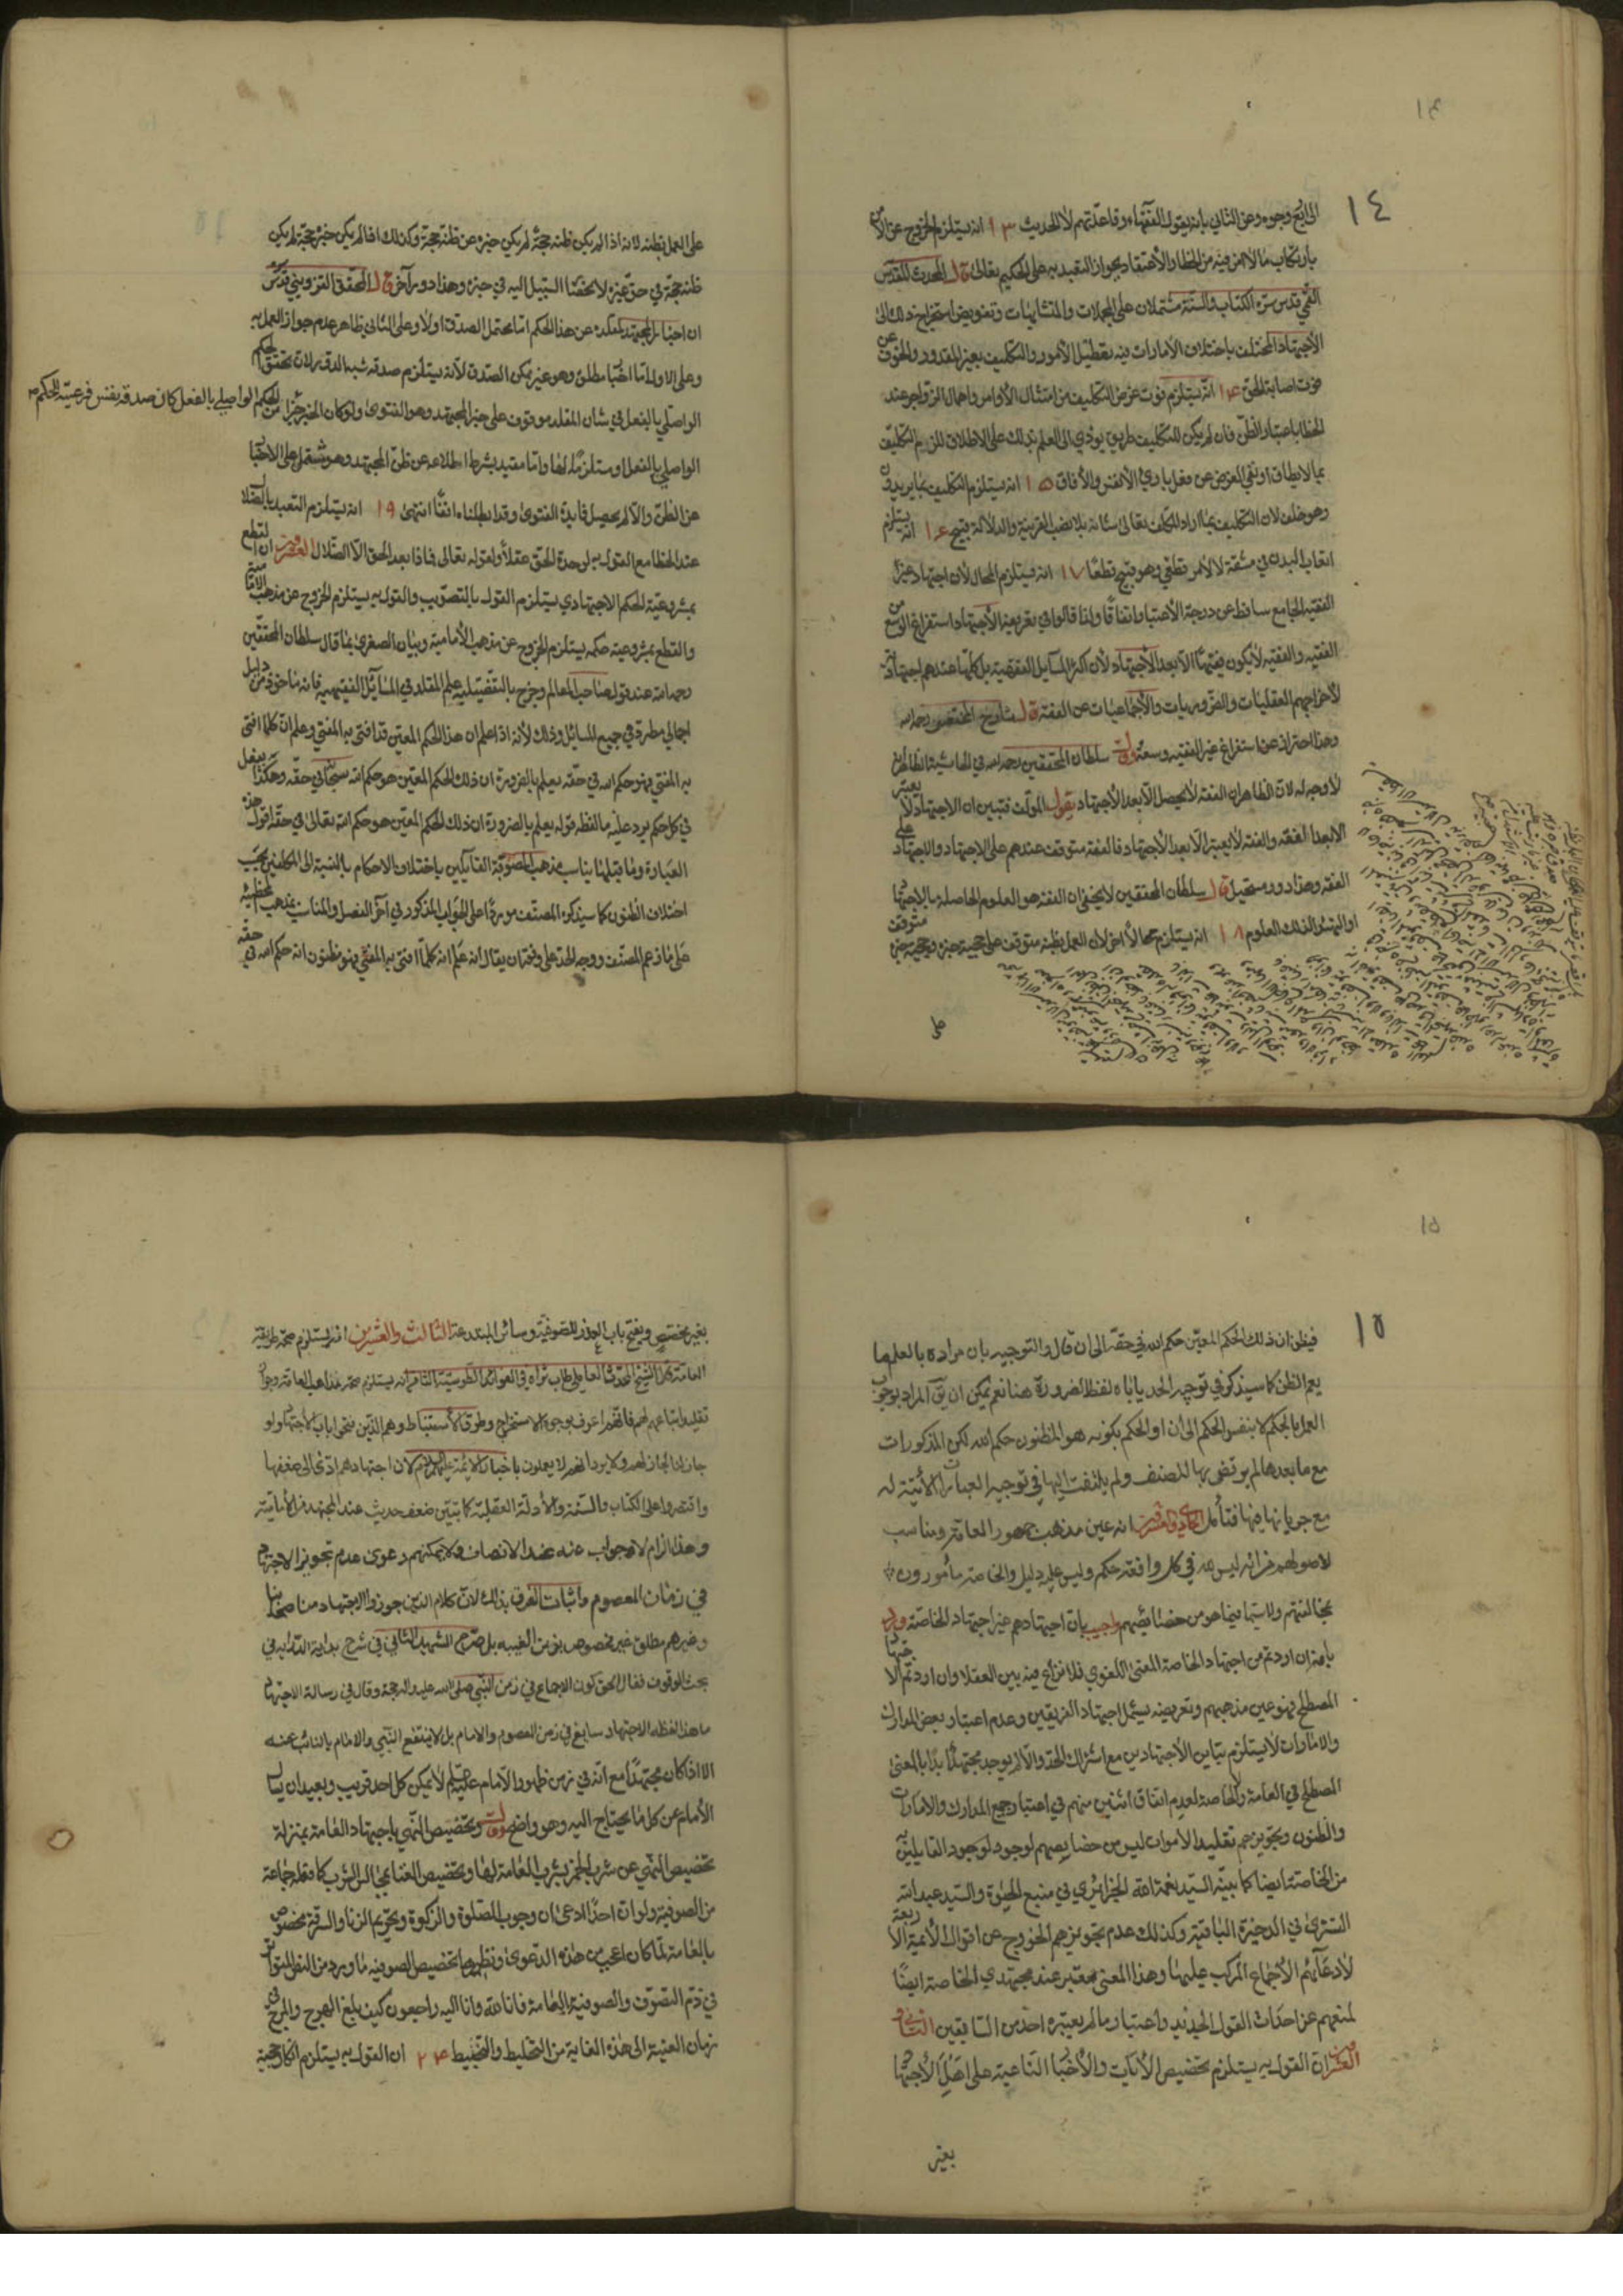 ١٤
الى اربع وجوه وعن الثاني بانه يقول الفقهاء وقاعدتهم لا الحديث ١٣ انه يستلزم الخروج عن الأمن
بارتكاب ما لا امن فيه من الخطا والأعتقاد بجواز التعبد به على الحكيم تعالى قال المحدث المقدس
القمي قدس سره الكتاب والسنة مشتملان على المجملات والمتشابهات وتفويض استخراج ذلك الى
الأجتهاد المختلف باختلاف الامارات فيه تعطيل الأمور والتكليف بغير المقدور والخوف عن
فوت اصابة الحق ١٤ انه يستلزم فوت غرض التكليف من امتثال الأوامر واهمال الزواجر عند
الخطا باعتبار الظن فان لم يكن للتكليف طريق يؤدي الى العلم بذلك على الاطلاق للزم التكليف
بما لا يطاق او نفي الغرض عن فعل باري الأنفس والأفاق ١٥ انه يستلزم التكليف بما يريدون
وهو خلف لان التكليف بما اراد المكلف تعالى شانه بلا نصب القرينة والدلالة قبيح ١٦ انه يستلزم
اتعاب البدن في مشقة لا لأمر قطعي وهو قبيح قطعا ١٧ انه يستلزم المحال لأن اجتهاد غير
الفقيه الجامع ساقط عن درجة الأعتبار اتفاقا ولذا قالوا في تعريفه الأجتهاد استفراغ الوسع من
الفقيه والفقيه لا يكون فقيها الا بعد الأجتهاد لأن اكثر المسايل الفقهية بل كلها عندهم اجتهادية
لأخراجهم العقليات والضروريات والأجماعيات عن الفقه قال شارح المختصر رحمه الله
وهذا احتراز عن استفراغ غير الفقيه وسعه وقال سلطان المحققين رحمه الله في الحاشية الظاهر انه
لا وجه له لان الظاهر ان الفقه لا يحصل الا بعد الأجتهاد يقول المؤلف فتبين ان الاجتهاد لا يعتبر
الا بعد الفقه والفقه لا يعتبر الا بعد الأجتهاد فالفقه متوقف عندهم على الاجتهاد والاجتهاد على
الفقه وهذا دور مستحيل قال سلطان المحققين لا يخفى ان الفقه هو العلوم الحاصلة بالاجتهاد
او التهيئ لذلك العلوم ١٨ انه يستلزم محالا اخر لان العمل بظنه متوقف على حجية خبره وحجية خبره متوقف
على
على العمل بظنه لانه اذا لم يكن ظنه حجة لم يكن خبره عن ظنه حجة وكذلك اذا لم يكن خبره حجة لم يكن
ظنه حجة في حق غيره لانحصار السبيل اليه في خبره وهذا دور آخر قال المحقق القزويني قدس
ان اخبار المجتهد لمقلده عن هذا الحكم اما محتمل الصدق او لا وعلى الثاني ظاهر عدم جواز العمل به
وعلى الاول اما اخبار مطلق وهو غير ممكن الصدق لأنه يستلزم صدقه شبه الدور لان تحقق الحكم
الواصلي بالفعل في شان المقلد موقوف على خبر المجتهد وهو الفتوى ولو كان الخبر خبرا عن الحكم الواصلي بالفعل كان صدقه نفس فرعية الحكم
الواصلي بالفعل او مستلزما لها واما مقيد بشرط اطلاعه عن ظن المجتهد وهو مشتمل على الاخبار
عن الظن والا لم يحصل فايدة الفتوى وقد ابطلناه انفا انتهى ١٩ انه يستلزم التعبد بالضلال
عند الخطا مع القول به لوحدة الحق عقلا ولقوله تعالى فماذا بعد الحق الا الضلال العشرون ان القطع
بمشروعية الحكم الاجتهادي يستلزم القول بالتصويب والقول به يستلزم الخروج عن مذهب الأمامية
والقطع بمشروعية حكمه يستلزم الخروج عن مذهب الأمامية وبيان الصغرى بما قال سلطان المحققين
رحمه الله عند قول صاحب المعالم وخرج بالتفصيلية علم المقلد في المسائل الفقهية فانه ماخوذ من دليل
اجمالي مطرد في جميع المسائل وذلك لأنه اذا علم ان هذا الحكم المعين قد افتى به المفتي وعلم ان كلما افتى
به المفتي فهو حكم الله في حقه يعلم بالضرورة ان ذلك الحكم المعين هو حكم الله سبحانه في حقه وهكذا يفعل
في كل حكم يرد عليه ما لفظه قوله يعلم بالضرورة ان ذلك الحكم المعين هو حكم الله تعالى في حقه اقول هذه
العبارة وما قبلها يناسب مذهب المصوبة القائلين باختلاف الاحكام بالنسبة الى المكلفين بحسب
اختلاف الظنون كما سيذكره المصنف موردا على الجواب المذكور في آخر الفصل والمناسب بمذهب المخطئة
على ما زعم المصنف ووجه الحد على وفقه ان يقال انه علم انه كلما افتى به المفتي فهو مظنون انه حكم الله في حقه
١٥
فيظن ان ذلك الحكم المعين حكم الله في حقه الى ان قال والتوجيه بان مراده بالعلم ما
يعم الظن كما سيذكره في توجيه الحد ياباه لفظ الضرورة هنا نعم يمكن ان يق المراد بوجوب
العمل بالحكم لا بنفس الحكم الى ان او الحكم بكونه هو المظنون حكم الله لكن المذكورات
مع ما بعدها لم يرتضى بها المصنف ولم يلتفت اليها في توجيه العبارة الأتية له
مع جريانها فيها فتأمل الحادي والعشرون انه عين مذهب جمهور العامة ومناسب
لاصولهم من انه ليس لله في كل واقعة حكم وليس عليه دليل والخاصة مأمورون
بمخالفتهم ولا سيما فيما هو من خصائصهم واجيب بان اجتهادهم غير اجتهاد الخاصة ورد
بأنه ان اردتم من اجتهاد الخاصة المعنى اللغوي فلا نزاع فيه بين العقلا وان اردتم الاجتهاد
المصطلح فهو عين مذهبهم وتعريفه يشمل اجتهاد الفريقين وعدم اعتبار بعض المدارك
والامارات لا يستلزم تباين الأجتهادين مع اشتراك الحد والا لم يوجد مجتهدا بدا بالمعنى
المصطلح في العامة والخاصة لعدم اتفاق اثنين منهم في اعتبار جميع المدارك والامارات
والظنون وتجويزهم تقليد الأموات ليس من خصايصهم لوجود لوجود القايلين به
من الخاصة ايضا كما بينه السيد نعمة الله الجزائري في منبع الحيوة والسيد عبد الله
التستري في الذخيرة الباقية وكذلك عدم تجويزهم الخروج عن اقوال الأئمة الأربعة
لأدعائهم الأجماع المركب عليها وهذا المعنى معتبر عند مجتهدي الخاصة ايضا
لمنعهم عن احداث القول الجديد واعتبار ما لم يعتبره احد من السابقين الثاني و
العشرون ان القول به يستلزم تخصيص الأيات والأخبار الناعية على اهل الأجتهاد
بغير
بغير مخصص ويفتح باب العذر للصوفية وسائر المبتدعة الثالث والعشرون انه يستلزم صحة طريقة
العامة قال الشيخ المحدث العاملي طاب ثراه في الفوائد الطوسية الثامن انه يستلزم صحة مذاهب العامة وجواز
تقليد اتباعهم لهم فانهم اعرف بوجوه الاستخراج وطرق الأستنباط وهم الذين فتحوا باب الأجتهاد ولو
جاز لنا لجاز لهم ولا يرد انهم لا يعملون باخبار الائمة عليهم السلام لان اجتهادهم ادى الى ضعفها
واقتصروا على الكتاب والسنة والأدلة العقلية كما تبين ضعف حديث عند المجتهد من الأمامية
وهذا الزام لا جواب عنه عند الانصاف ولا يمكنهم دعوى عدم تجويز الاجتهاد
في زمان المعصوم واثبات الفرق بذلك لان كلام الذين جوزوا الاجتهاد من اصحابنا
وغيرهم مطلق غير مخصوص بزمن الغيبة بل صرح الشهيد الثاني في شرح بداية الدراية في
بحث الوقوف فقال الحق كون الاجماع في زمن النبي صلى الله عليه واله حجة وقال في رسالة الاجتهاد
ما هذا لفظه الاجتهاد سايغ في زمن المعصوم والامام بل لا ينتفع النبي والامام بالنائب عنه
الا اذا كان مجتهدا مع انه في زمن ظهور الأمام عليه السلم لا يمكن كل احد قريب وبعيد ان يسال
الأمام عن كل ما يحتاج اليه وهو واضح وقال وتخصيص النهي باجتهاد العامة بمنزلة
تخصيص النهي عن شرب الخمر بشرب العامة لها وتخصيص الغناء بمجالس الشرب كما فعله جماعة
من الصوفية ولو ان احدا ادعى ان وجوب الصلوة والزكوة وتحريم الزنا والسرقة مخصوص
بالعامة لما كان اعجب من هذه الدعوى ونظيرها تخصيص الصوفية ما ورد من النقل المتواتر
في ذم التصوف والصوفية بالعامة فانا لله وانا اليه راجعون كيف بلغ الهرج والمرج في
زمان الغيبة الى هذه الغاية من التخليط والتخبيط ٢٤ ان القول به يستلزم انكار حجية